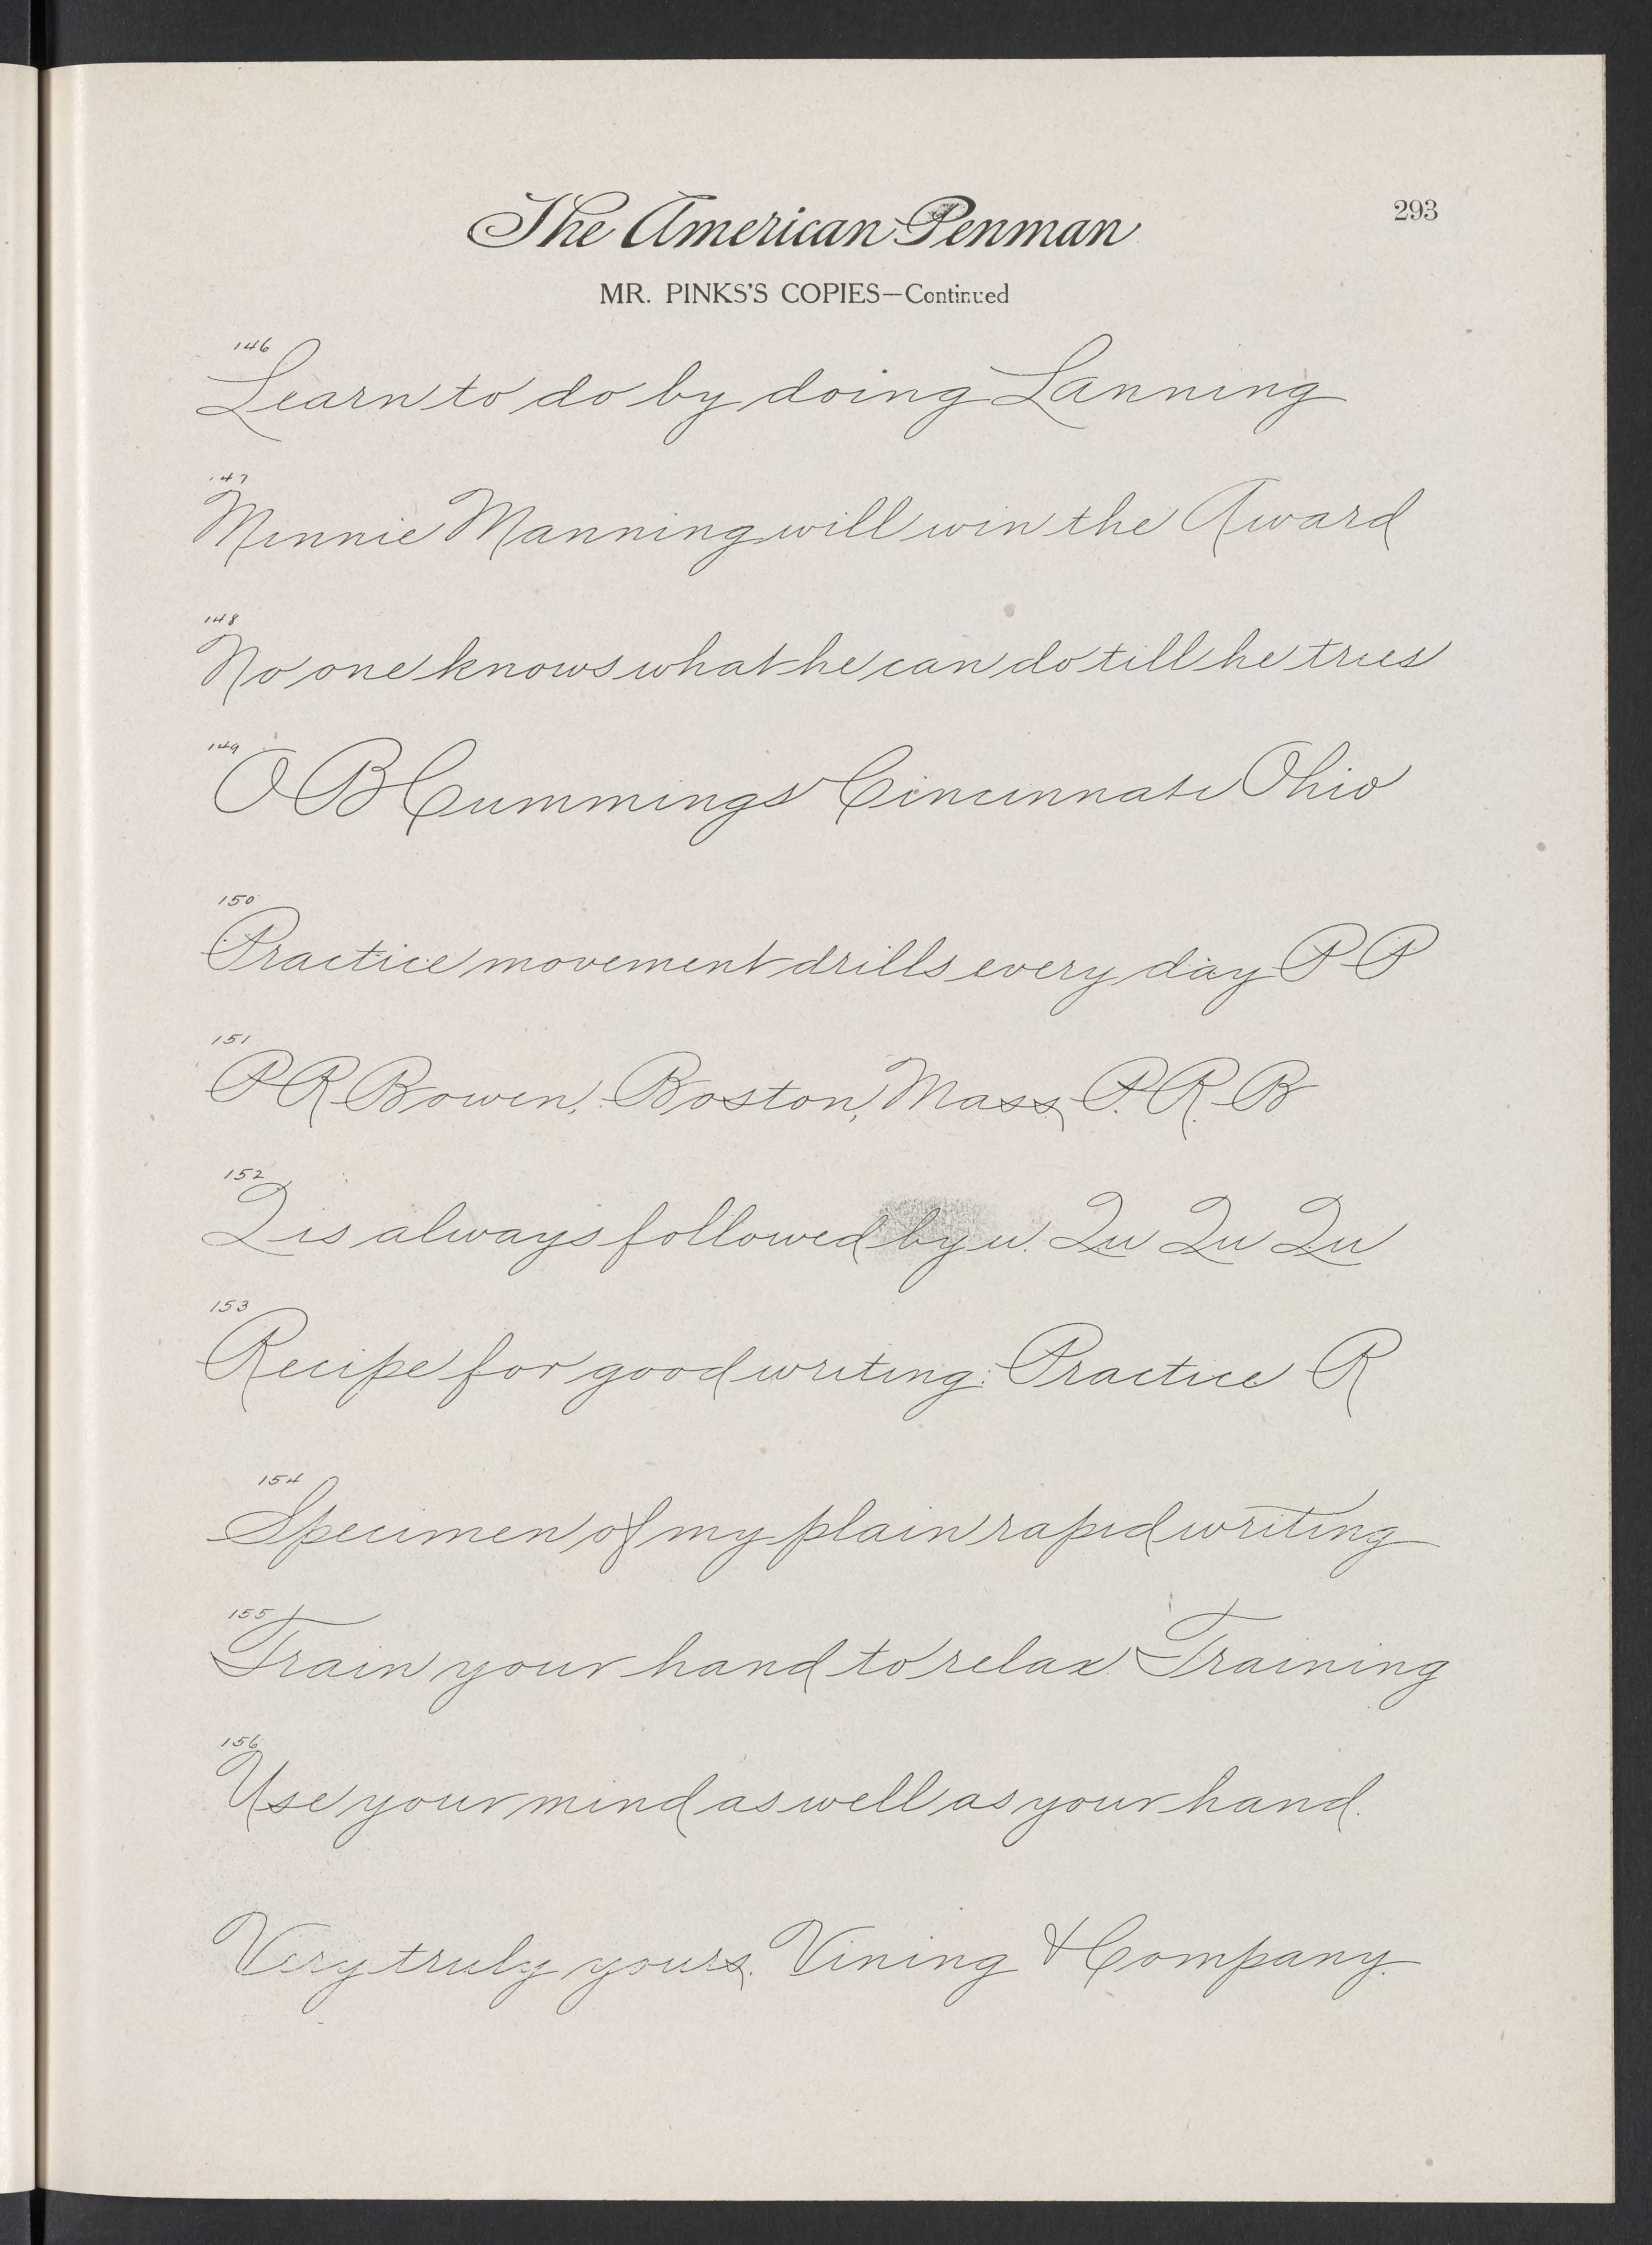 The American Penman
293
MR. PINKS'S COPIES—Continued
146
Learn to do by doing Lanning
147
Minnie Manning will win the Award
148
No one knows what he can do till he tries
149
O B Cummings Cincinnati Ohio
150
Practice movement drills every day P P
151
P R Bowen, Boston, Mass. P. R. B
152
Q is always followed by u. Qu Qu Qu
153
Recipe for good writing: Practice R
154
Specimen of my plain rapid writing
155
Train your hand to relax. Training
156
Use your mind as well as your hand.
Very truly yours, Vining & Company.